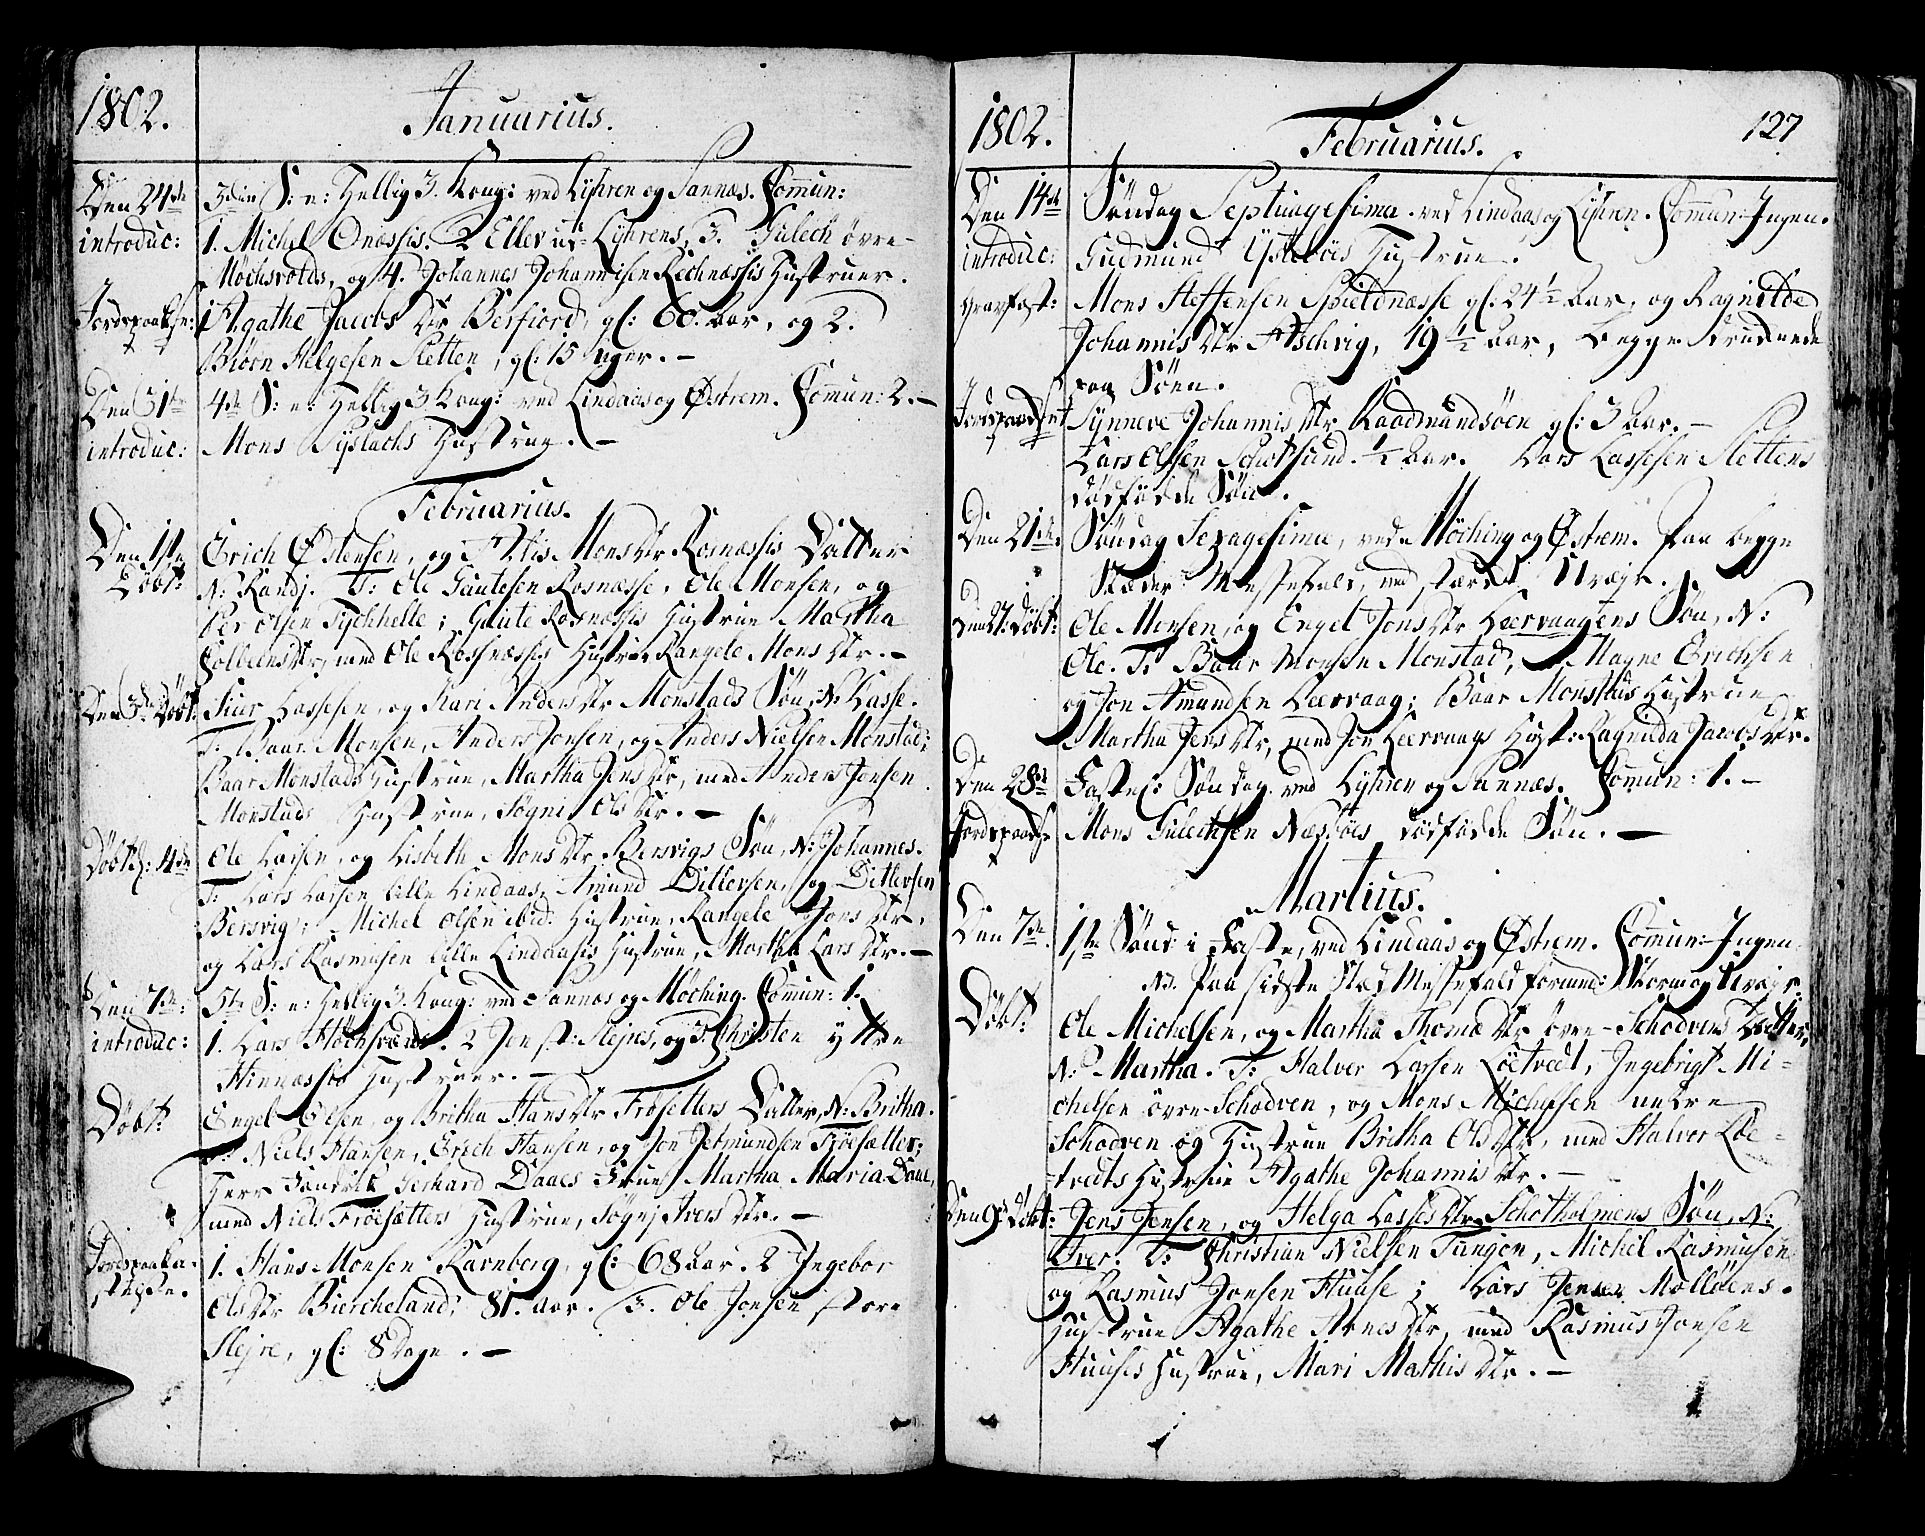 1802. Januarius.
Den 24de 3die S: e: Hellig 3. Kong: ved Lyhren og Sannæs. Com̄un:
introduc: 1. Michel Onæssis. 2 Elev us Lyhrens, 3. Gulech øvre-
Møchsvolds, og 4. Johannes Johannisen Rechnæssis Hustruer.
Jordspaaksn: 1 Agathe Jacobs Dtr Berfiord, gl: 60. Aar, og 2.
Biørn Helgesen Sletten, gl: 15 uger. —
Den 31te 4de S: e: Hellig 3 Kong: ved Lindaas og Østrem. Com̄un: 2. —
introduc: Mons Syslachs Hustrue. —
Februarius.
Den 1ste Erich Østensen, og Mons Dtr Rosnæssis Datter
Døbt: N: Randj. T: Ole Gautesen Rosnæsse, Ole Monsen, og
Per Olsen Tychhelle; Gaute Rosnæssis Hustrue Martha
Colbeens Dtr, med Ole Rossnæssis Hustrue Rangele Mons Dtr. —
Den 3de Døbt: Siur Lassesen, og Kari Anders Dtr Monstads Søn, N: Lasse.
T: Baar Monsen, Anders Jonsen, og Anders Nielsen Monstad;
Baar Monstads Hustrue, Martha Jens Dtr, med Anders Jonsen
Monstads Hustrue, Søgni Ols Dtr. —
Døbt d: 4de Ole Larsen, og Lisbeth Mons Dtr Bersvigs Søn, N: Johannes.
T: Lars Larsen lille Lindaas, Amund Ditlevsen, og Ditlevsen
Bersvig; Michel Olsen ibid: Hustrue, Rangele Jons Dtr,
og Lars Rasmusen lille Lindaasis Hustrue, Martha Lars Dtr. —
Den 7de: 5te S: e: Hellig 3. Kong: ved Sannæs og Møching. Com̄un: 1.
introduc: 1. Lars Høchsvæds. 2 Jon st: Slejres, og 3. Christen yttre
Hinnæssis Hustruer. —
Døbt: Engel Olsen, og Britha Hans Dtr Frøsetters Datter, N: Britha.
T: Niels Hansen, Erich Hansen, og Jon Jetmundsen Frøesætter;
Herr Gerhard Daaes Frue Martha Maria Daae,
med Niels Frøesætters Hustrue, Søgnj Ivers Dtr. —
Jordspaaka- 1. Hans Monsen Ravnberg, gl: 68 Aar. 2 Ingebor
stelse. Ols Dtr Biercheland; 81. Aar. 3. Ole Jonsen store
Slejre, gl: 8 Dage. —
1802. Februarius. 127
Den 14de Søndag Septuagesima. ved Lindaas og Lyhren. Com̄un: Ingen.
introduc: Gudmund Ystebøes Hustrue.
Gravfæst: Mons Steffensen Spieldnæsse gl: 24 1/2 Aar, og Ragnilde
Johannis Dtr Aschvig, 19 1/2 Aar, begge druknede
paa Søen.
Jordspaaksn: Synneve Johannis Dtr Raadmundsøen gl: 3 Aar. —
Lars Olsen Schotsund. 1/2 Aar. Lars Lassesen Slettens
dødfødde Søn.
Den 21de. Søndag Sexagesima, ved Møching og Østrem. Paa begge
Stæder Messefald, med stærdt Uvejr.
Den 27: Døbt: Ole Monsen, og Engel Jons Dtr Leervaagens Søn, N:
Ole. T: Baar Monsen Monstad, Magne Erichsen
og Jon Amundsen Leervaag; Baar Monstads Hustrue
Martha Jens Dtr, med Jon Leervaags Hust: Ragnilda Jacobs Dtr.
Den 28de Fastel: Søndag. ved Lyhren og Sannæs. Com̄un: 1. —
Jordspaaksn Mons Gulechsen Næsbøes dødfødde Søn. —
Martius.
Den 7de. 1ste Sønd: i Faste, ved Lindaas og Østrem. Com̄un: Ingen.
N. paa sidste Sted Messefald formed: Storm og Uvejr.
Døbt: Ole Michelsen, og Martha Thomæ Dtr øvre-Schodvens Datter,
N: Martha. T: Halver Larsen Løetvedt, Ingebrigt Mi-
chelsen øvre-Schodven, og Mons Michelsen nedre
Schodven og Hustrue Britha Ols Dtr, med Halvor Løe-
tvedts Hustrue Agathe Johannis Dtr. —
Den 9de Døbt: Jens Jensen, og Helga Lasses Dtr Schotholmens Søn, N:
Iver. T: Christian Nielsen Tangen, Michel Rasmusen
og Rasmus Jonsen Huuse; Lars Jensen Molløens
Hustrue Agathe Arnes Dtr, med Rasmus Jonsen
Huuses Hustrue, Mari Mathis Dtr. —